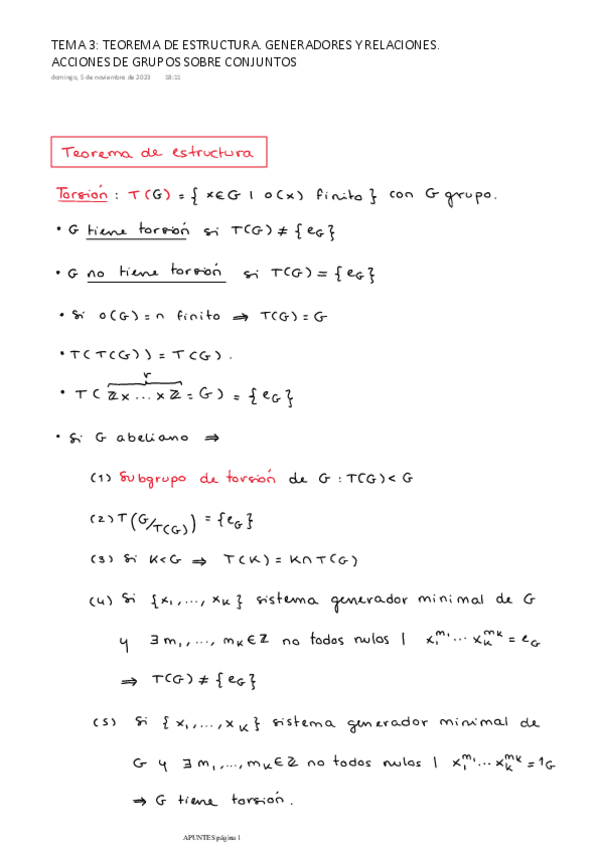 TEMA 3: TEOREMA DE ESTRUCTURA. GENERADORES Y RELACIONES.
ACCIONES DE GRUPOS SOBRE CONJUNTOS
domingo, 5 de noviembre de 2023 18:11
Teorema de estructura
Torsión : T(G) = { x∈G | o(x) finito } con G grupo.
• G tiene torsión si T(G) ≠ {e_G}
• G no tiene torsión si T(G) = {e_G}
• Si o(G) = n finito ⇒ T(G) = G
• T(T(G)) = T(G).
r
• T( ℤ× ... ×ℤ = G) = {e_G}
• Si G abeliano ⇒
(1) Subgrupo de torsión de G : T(G) < G
(2) T(G/T(G)) = {e_G}
(3) Si K<G ⇒ T(K) = K∩T(G)
(4) Si {x₁, ..., x_K} sistema generador minimal de G
y ∃ m₁, ..., m_K ∈ ℤ no todos nulos | x₁^m₁ ... x_K^m_K = e_G
⇒ T(G) ≠ {e_G}
(5) Si {x₁, ..., x_K} sistema generador minimal de
G y ∃ m₁, ..., m_K ∈ ℤ no todos nulos | x₁^m₁ ... x_K^m_K = 1_G
⇒ G tiene torsión.
APUNTES página 1